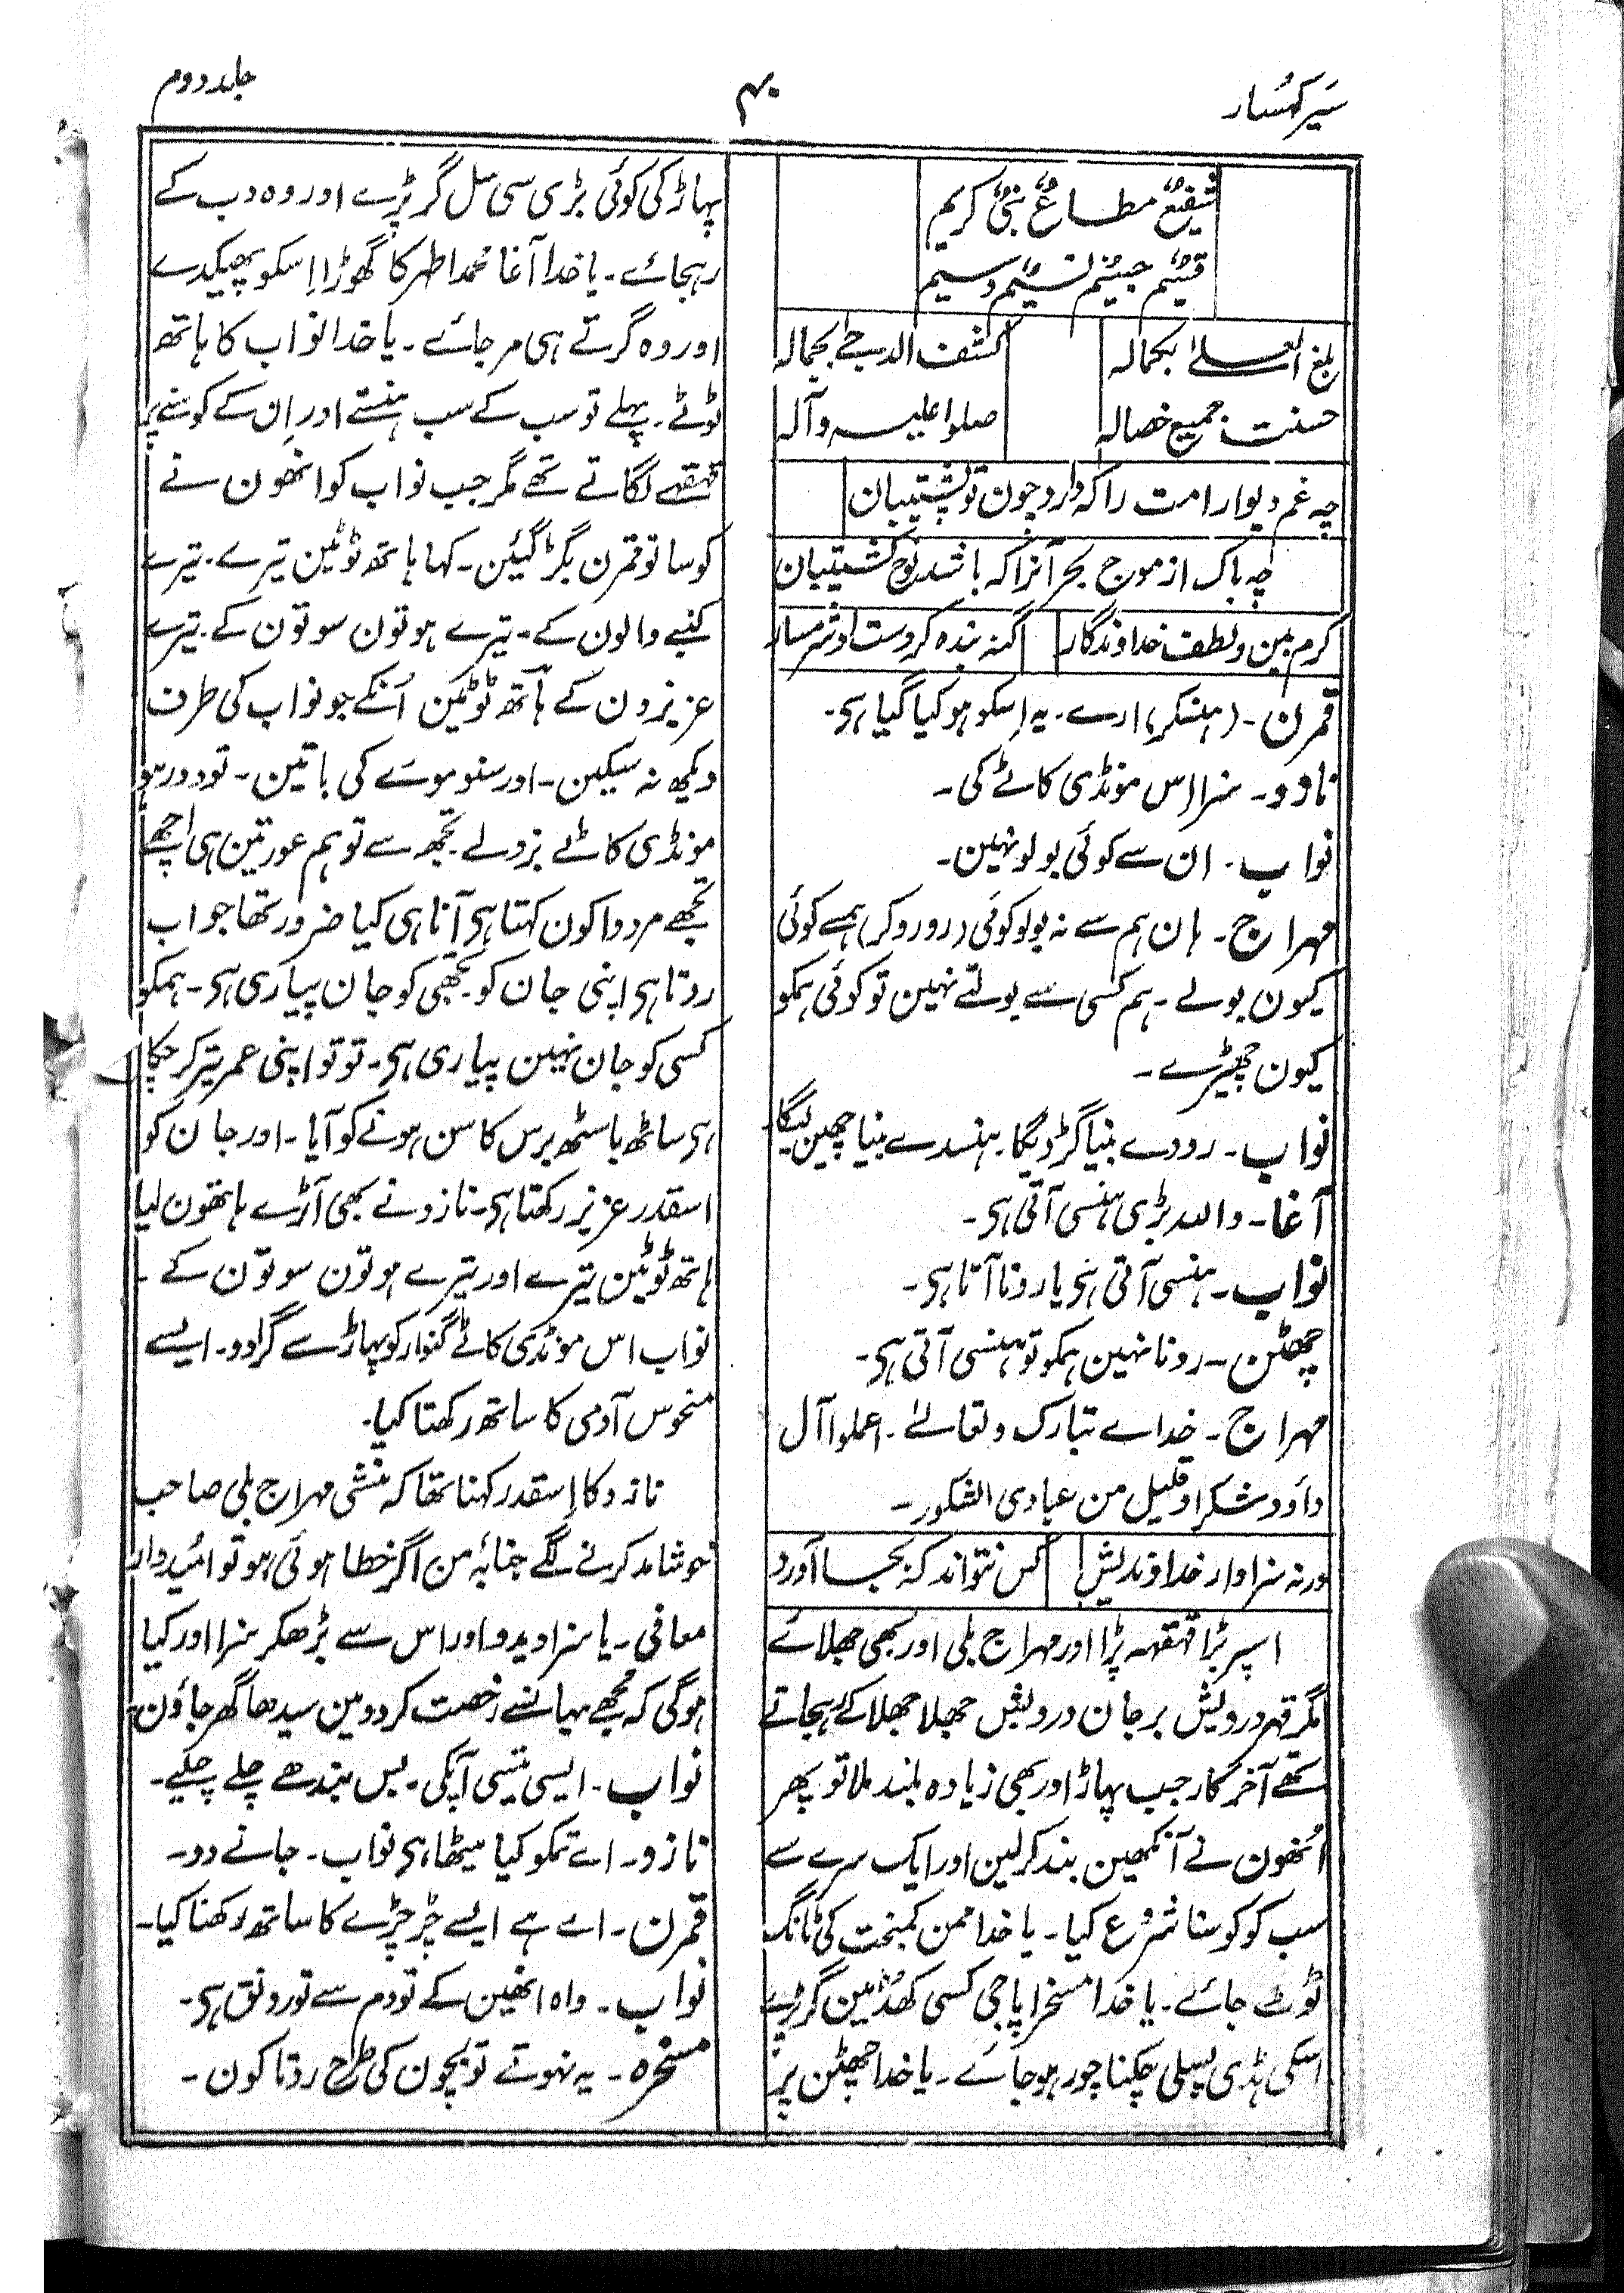 سیر کہسار
۴۰
جلد دوم
شفیعٌ مطاعٌ نبیٌ کریم
قسیم جسیم نسیم وسیم
بلغ العلےٰ بکمالہ
کشف الدجےٰ بجمالہ
حسنت جمیع خصالہ
صلوا علیہ وآلہ
چہ غم دیوار امت را کہ دارد چون تو پشتیبان
چہ باک از موج بحر آنرا کہ باشد نوح کشتیبان
کرم بین و لطف خداوندگار
گنہ بندہ کردست او شرمسار
قمرن۔ (ہنسکر) ارے۔ یہ اِسکو ہو کیا گیا ہی۔
نازو۔ سزا اس مونڈی کاٹے کی۔
نواب۔ ان سے کوئی بولو نہین۔
مہراج۔ ہان ہم سے نہ بولو کوئی (رو رو کر) ہمسے کوئی
کیون بولے۔ ہم کسی سے بولتے نہین تو کوئی ہمکو
کیون چھیڑے۔
نواب۔ رو دے بنیا گڑ دیگا۔ ہنسدے بنیا چھین لیگا۔
آغا۔ واللہ بڑی ہنسی آتی ہی۔
نواب۔ ہنسی آتی ہی یا رونا آتا ہی۔
چھٹن۔ رونا نہین ہمکو تو ہنسی آتی ہی۔
مہراج۔ خداے تبارک و تعالےٰ۔ اعملوا آل
داؤد شکرا و قلیل من عبادی الشکور۔
ورنہ سزاوار خداوندیش
کس نتواند کہ بجا آورد
اسپر بڑا قہقہہ پڑا اور مہراج بلی اور بھی جھلائے
مگر قہر درویش بر جان درویش جھلا جھلا کے رہجاتے
تھے آخرکار جب پہاڑ اور بھی زیادہ بلند ملا تو پھر
اُنھون نے آنکھین بند کرلین اور ایک سرے سے
سب کو کوسنا شروع کیا۔ یا خدا ممن کمبخت کی ٹانگ
ٹوٹ جائے۔ یا خدا مسخرا پاجی کسی کھڈ مین گر پڑے
اسکی ہڈی پسلی چکنا چور ہو جائے۔ یا خدا چھٹن پر
پہاڑ کی کوئی بڑی سی سل گر پڑے اور وہ دب کے
رہجائے۔ یا خدا آغا محمد اطہر کا گھوڑا اِسکو پھیکدے
اور وہ گرتے ہی مر جائے۔ یا خدا نواب کا ہاتھ
ٹوٹے۔ پہلے تو سب کے سب ہنستے اور اِن کے کوسنے پر
قہقہے لگاتے تھے مگر جب نواب کو انھون نے
کوسا تو قمرن بگڑ گئین۔ کہا ہاتھ ٹوٹین تیرے۔ تیرے
کنبے والون کے۔ تیرے ہوتون سوتون کے۔ تیرے
عزیزون کے ہاتھ ٹوٹین اُنکے جو نواب کی طرف
دیکھ نہ سکین۔ اور سنو موے کی باتین۔ تو دور ہو
مونڈی کاٹے بزدلے۔ تجھ سے تو ہم عورتین ہی اچھے
تجھے مردوا کون کہتا ہی آنا ہی کیا ضرور تھا جو اب
روتا ہی اپنی جان کو۔ تجھی کو جان پیاری ہی۔ ہمکو
کسی کو جان نہین پیاری ہی۔ تو تو اپنی عمر تیر کر چکا
ہی ساٹھ باسٹھ برس کا سن ہونے کو آیا۔ اور جان کو
اسقدر عزیز رکھتا ہی۔ نازو نے بھی آڑے ہاتھون لیا
ہاتھ ٹوٹین تیرے اور تیرے ہوتون سوتون کے۔
نواب اس مونڈی کاٹے گنوار کو پہاڑ سے گرا دو۔ ایسے
منحوس آدمی کا ساتھ رکھنا کیا۔
نازو کا اِسقدر کہنا تھا کہ منشی مہراج بلی صاحب
خوشامد کرنے لگے جنابۂ من اگر خطا ہوئی ہو تو امیدوار
معافی۔ یا سزا دیدو اور اس سے بڑھکر سزا اور کیا
ہوگی کہ مجھے یہانسے رخصت کردو مین سیدھا گھر جاؤن۔
نواب۔ ایسی تیسی آپکی۔ بس بندھے چلے چلیے۔
نازو۔ اے تمکو کیا میٹھا ہی نواب۔ جانے دو۔
قمرن۔ اے ہے ایسے چڑچڑے کا ساتھ رکھنا کیا۔
نواب۔ واہ انھین کے تو دم سے تو رونق ہی۔
مسخرہ۔ یہ نہوتے تو بچون کی طرح روتا کون۔